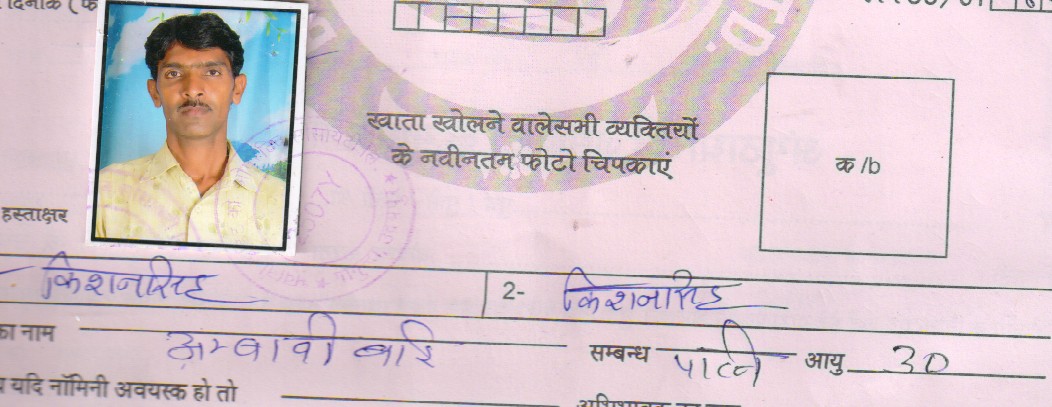 दिनांक (फ
TD.
खाता खोलने वालेसभी व्यक्तियों
के नवीनतम फोटो चिपकाएं
क /b
हस्ताक्षर
किशनसिंह 2- किशनसिंह
का नाम बाई सम्बन्ध पत्नि आयु 30
यदि नॉमिनी अवयस्क हो तो